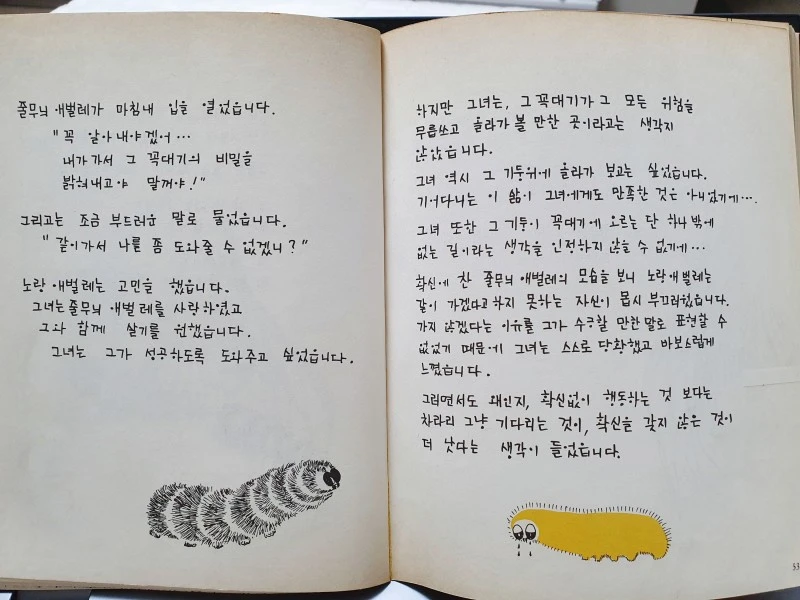 줄무늬 애벌레가 마침내 입을 열었습니다.
"꼭 알아내야겠어…
내가가서 그 꼭대기의 비밀을
밝혀내고야 말꺼야!"
그리고는 조금 부드러운 말로 물었습니다.
"같이가서 나를 좀 도와줄 수 없겠니?"
노랑 애벌레는 고민을 했습니다.
그녀는 줄무늬 애벌레를 사랑하였고
그와 함께 살기를 원했습니다.
그녀는 그가 성공하도록 도와주고 싶었습니다.
하지만 그녀는, 그 꼭대기가 그 모든 위험을
무릅쓰고 올라가 볼 만한 곳이라고는 생각지
않았습니다.
그녀 역시 그 기둥위에 올라가 보고는 싶었습니다.
기어다니는 이 삶이 그녀에게도 만족한 것은 아니었기에….
그녀 또한 그 기둥이 꼭대기에 오르는 단 하나 밖에
없는 길이라는 생각을 인정하지 않을 수 없기에…
확신에 찬 줄무늬 애벌레의 모습을 보니 노랑애벌레는
같이 가겠다고 하지 못하는 자신이 몹시 부끄러웠습니다.
가지 않겠다는 이유를 그가 수긍할 만한 말로 표현할 수
없었기 때문에 그녀는 스스로 당황했고 바보스럽게
느꼈습니다.
그러면서도 왜인지, 확신없이 행동하는 것 보다는
차라리 그냥 기다리는 것이, 확신을 갖지 않은 것이
더 낫다는 생각이 들었습니다.
53